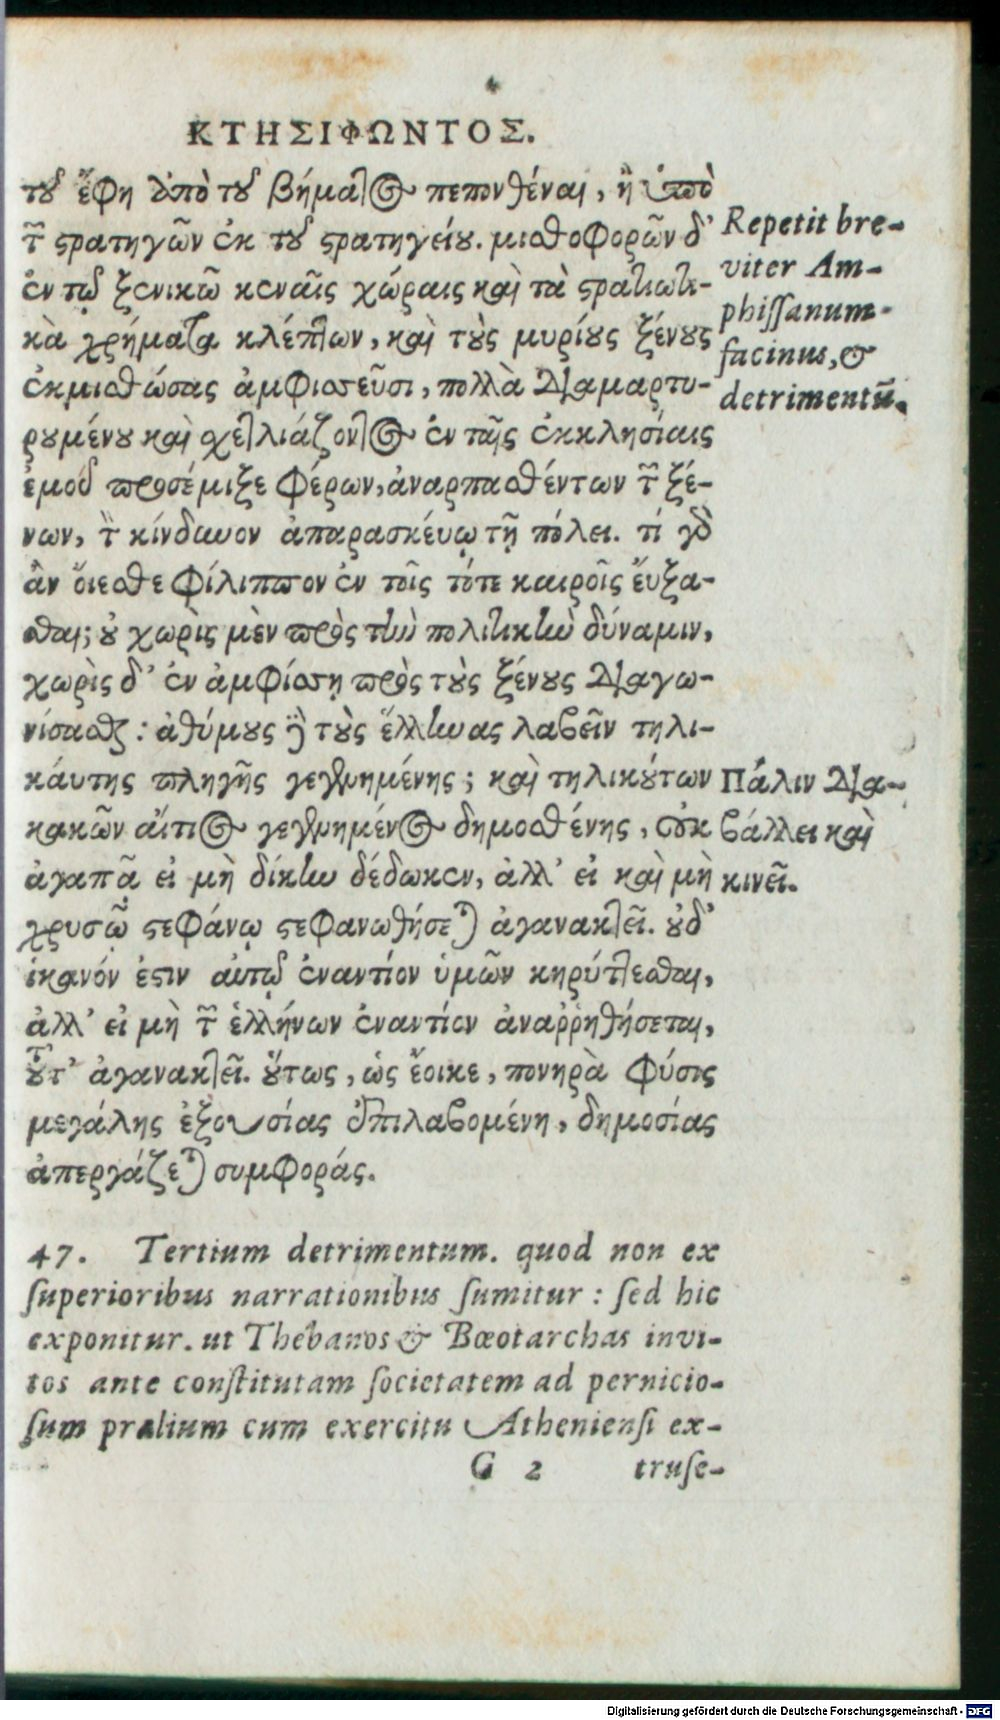 ΚΤΗΣΙΦΩΝΤΟΣ.
τοῦ ἔφη ἀπὸ τοῦ βήματος πεπονθέναι, ἢ ὑπὸ
τῶν στρατηγῶν ἐκ τοῦ στρατηγείου. μισθοφορῶν δ’
ἐν τῷ ξενικῷ κεναῖς χώραις καὶ τὰ στρατιωτι-
κὰ χρήματα κλέπτων, καὶ τοὺς μυρίους ξένους
ἐκμισθώσας ἀμφισσεῦσι, πολλὰ διαμαρτυ-
ρουμένου καὶ σχετλιάζοντος ἐν ταῖς ἐκκλησίαις
ἐμοῦ προσέμιξε φέρων, ἀναρπασθέντων τῶν ξέ-
νων, τὸν κίνδυνον ἀπαρασκεύῳ τῇ πόλει. τί γὰρ
ἂν οἴεσθε Φίλιππον ἐν τοῖς τότε καιροῖς εὔξα-
σθαι; οὐ χωρὶς μὲν πρὸς τὴν πολιτικὴν δύναμιν,
χωρὶς δ’ ἐν ἀμφίσσῃ πρὸς τοὺς ξένους διαγω-
νίσασθαι: ἀθύμους δὲ τοὺς ἕλληνας λαβεῖν τηλι-
καύτης πληγῆς γεγενημένης; καὶ τηλικούτων
κακῶν αἴτιος γεγενημένος δημοσθένης, οὐκ
ἀγαπᾷ εἰ μὴ δίκην δέδωκεν, ἀλλ’ εἰ καὶ μὴ
χρυσῷ στεφάνῳ στεφανωθήσεται ἀγανακτεῖ. οὐδ’
ἱκανόν ἐστιν αὐτῷ ἐναντίον ὑμῶν κηρύττεσθαι,
ἀλλ’ εἰ μὴ τῶν ἑλλήνων ἐναντίον ἀναῤῥηθήσεται,
τοῦτ’ ἀγανακτεῖ. οὕτως, ὡς ἔοικε, πονηρὰ φύσις
μεγάλης ἐξουσίας ἐπιλαβομένη, δημοσίας
ἀπεργάζεται συμφοράς.
Repetit bre-
viter Am-
phissanum
facinus, &
detrimentū.
Πάλιν δια-
βάλλει καὶ
κινεῖ.
47. Tertium detrimentum. quod non ex
superioribus narrationibus sumitur: sed hic
exponitur. ut Thebanos & Bœotarchas invi-
tos ante constitutam societatem ad pernicio-
sum prælium cum exercitu Atheniensi ex-
G 2 truse-
Digitalisierung gefördert durch die Deutsche Forschungsgemeinschaft - DFG